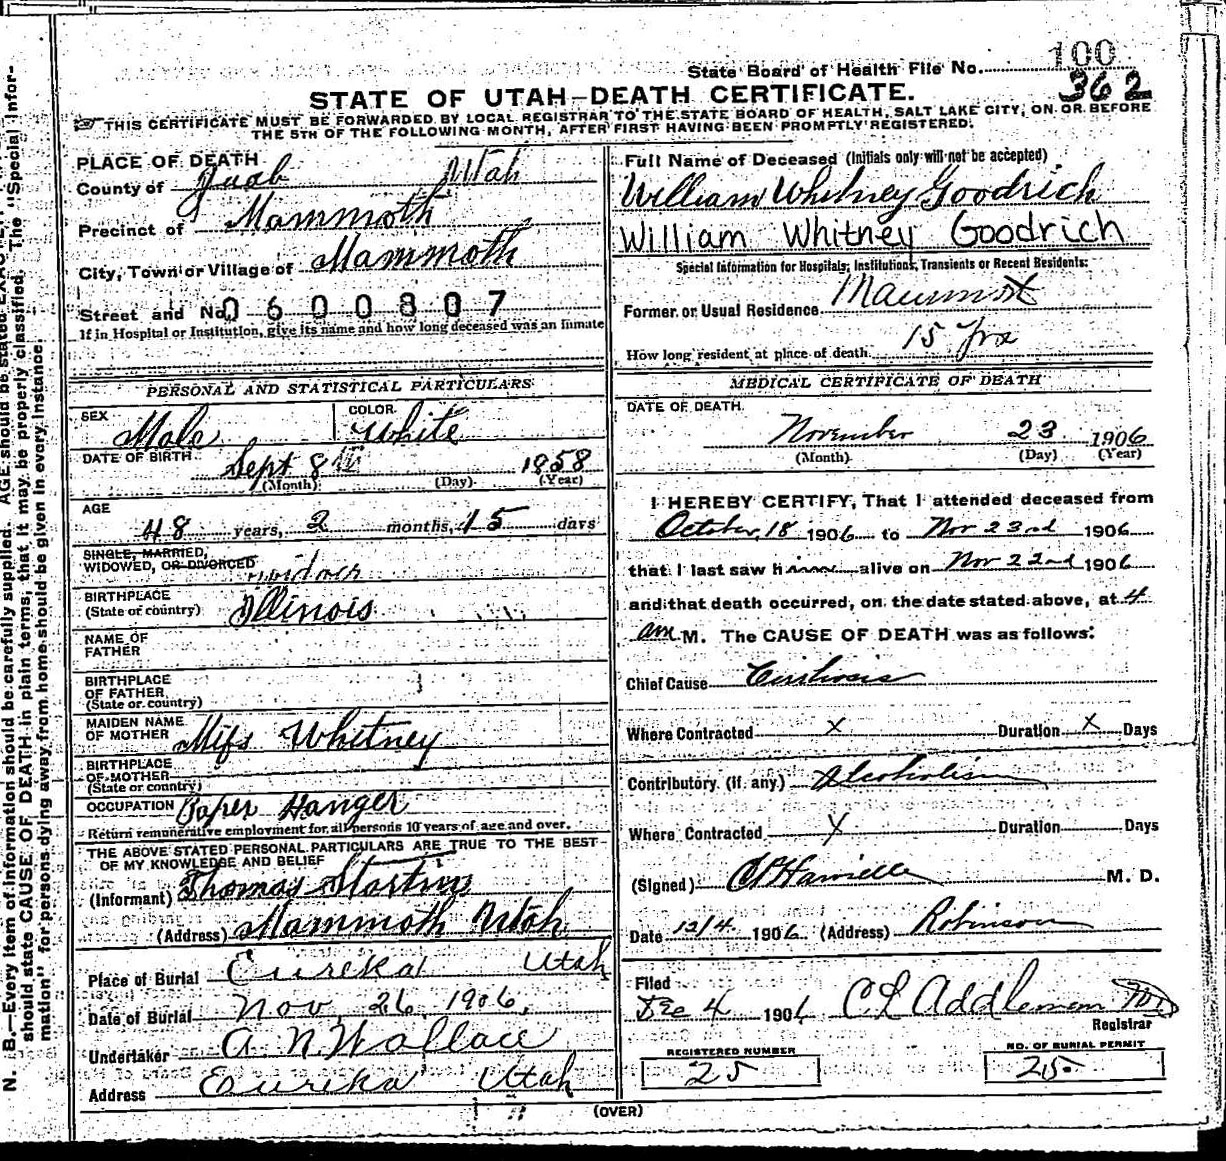 100
State Board of Health File No.
362
STATE OF UTAH—DEATH CERTIFICATE.
THIS CERTIFICATE MUST BE FORWARDED BY LOCAL REGISTRAR TO THE STATE BOARD OF HEALTH, SALT LAKE CITY, ON OR BEFORE
THE 5TH OF THE FOLLOWING MONTH, AFTER FIRST HAVING BEEN PROMPTLY REGISTERED.
PLACE OF DEATH
County of Juab Utah
Precinct of Mammoth
City, Town or Village of Mammoth
Street and No. 0600807
If in Hospital or Institution, give its name and how long deceased was an inmate
PERSONAL AND STATISTICAL PARTICULARS
SEX Male COLOR White
DATE OF BIRTH Sept 8th 1858
(Month) (Day) (Year)
AGE
48 years, 2 months, 15 days
SINGLE, MARRIED,
WIDOWED, OR DIVORCED
BIRTHPLACE
(State or country) Illinois
NAME OF
FATHER
BIRTHPLACE
OF FATHER
(State or country)
MAIDEN NAME
OF MOTHER Miss Whitney
BIRTHPLACE
OF MOTHER
(State or country)
OCCUPATION Paper Hanger
Return remunerative employment for all persons 10 years of age and over.
THE ABOVE STATED PERSONAL PARTICULARS ARE TRUE TO THE BEST
OF MY KNOWLEDGE AND BELIEF
(Informant) Thomas
(Address) Mammoth Utah
Place of Burial Eureka Utah
Date of Burial Nov. 26 1906.
Undertaker A N Wallace
Address Eureka Utah
Full Name of Deceased (Initials only will not be accepted)
William Whitney Goodrich
William Whitney Goodrich
Special Information for Hospitals, Institutions, Transients or Recent Residents:
Former or Usual Residence
How long resident at place of death 15 Yrs
MEDICAL CERTIFICATE OF DEATH
DATE OF DEATH
November 23 1906
(Month) (Day) (Year)
I HEREBY CERTIFY, That I attended deceased from
October, 18 1906 to Nov 23rd 1906
that I last saw him alive on Nov 22nd 1906
and that death occurred, on the date stated above, at 4
am M. The CAUSE OF DEATH was as follows:
Chief Cause Cirrhosis
Where Contracted x Duration x Days
Contributory (if any) Alcoholism
Where Contracted x Duration Days
(Signed) M. D.
Date 12/4. 1906. (Address) Robinson
Filed
Dec 4 1906 C L Addleman MD
Registrar
REGISTERED NUMBER
25
NO. OF BURIAL PERMIT
25
(OVER)
N. B.—Every item of information should be carefully supplied. AGE should be stated
should state CAUSE OF DEATH in plain terms, that it may be properly classified. The "Special Infor-
mation" for persons dying away from home should be given in every instance.